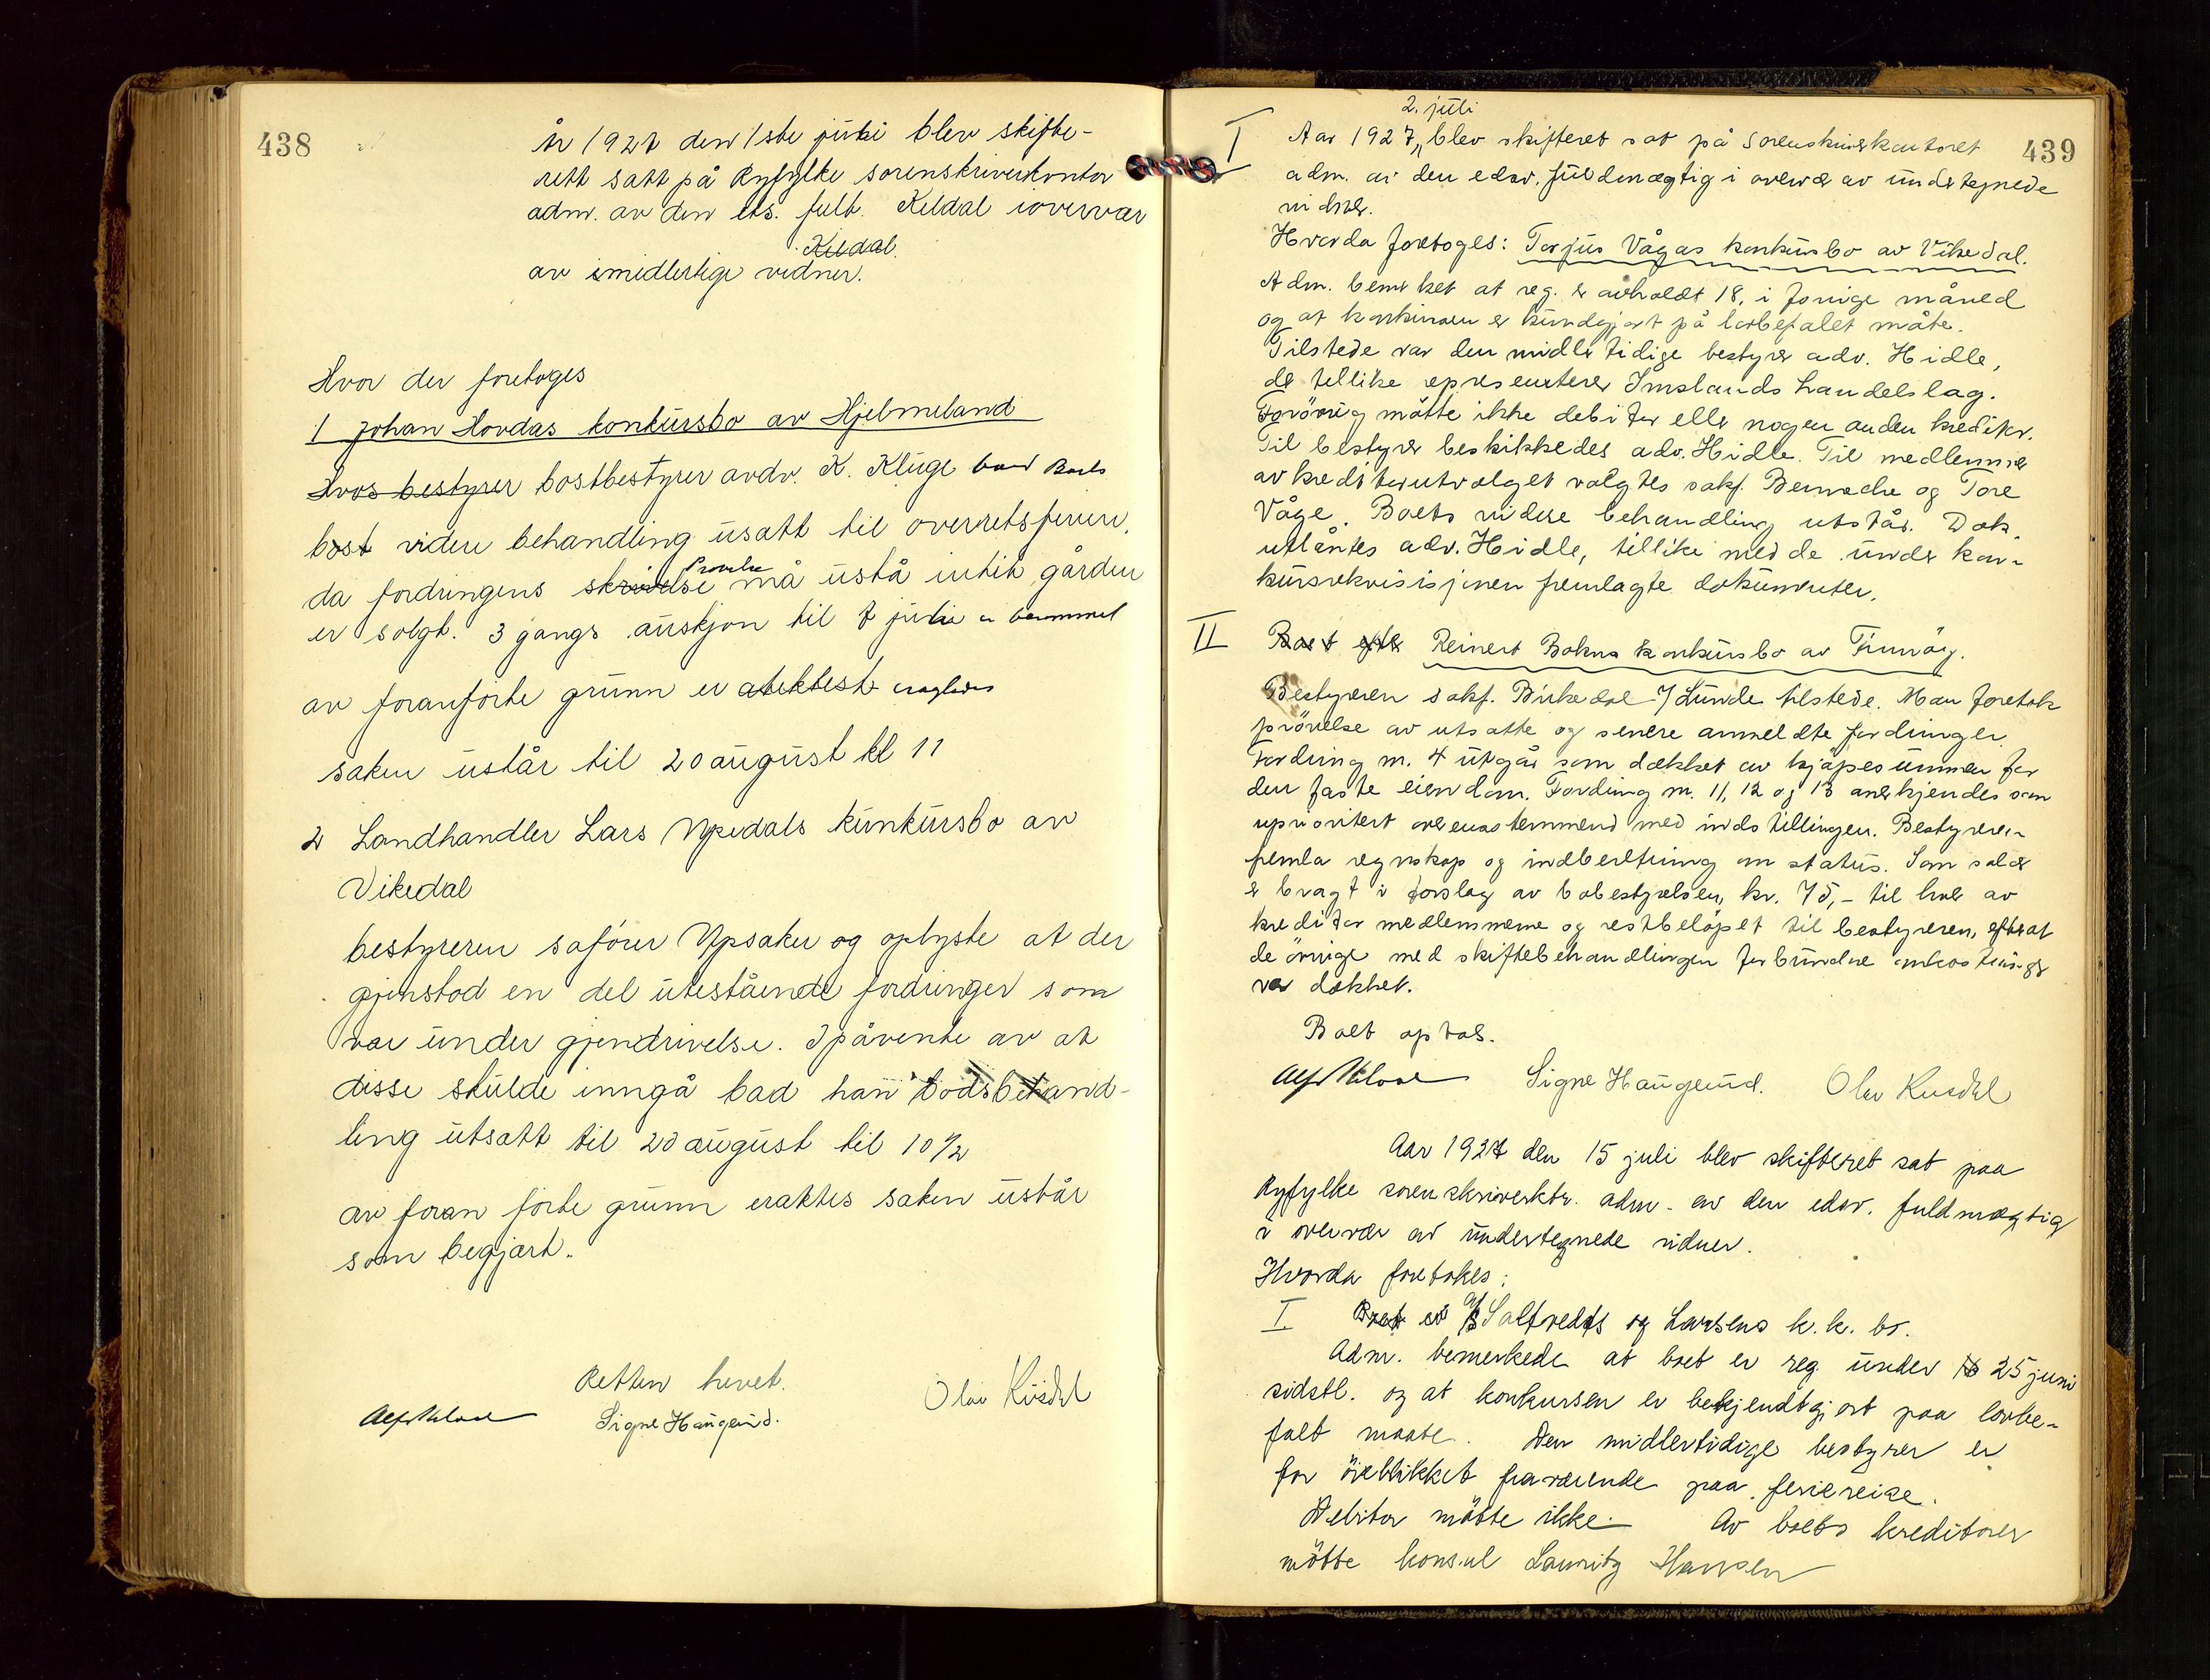 438
År 1927 den 1ste juli blev skifte-
rett satt på Ryfylke sorenskriverkontor
adm. av den eds. fulb. Kildal i overvær
Kildal.
av imidlertige vidner.
Hvor der foretoges
1 Johan Hovdas konkursbo av Hjelmeland
Hvos bestyrer bostbestyrer avdv. K. Kluge bad Boets
bost videre behandling usatt til overretsferien,
Prøvelse
da fordringens skrivelse må ustå intil gården
er solgt. 3 gangs auskjon til 7 juli er berammet
av foranførte grunn er
saken uståt til 20 august kl 11
2 Landhandler Lars Upedals kunkursbo av
Vikedal
bestyreren saförer Upsaker og oplyste at der
gjenstod en del utestående fordringer som
var under gjendrivelse. I påvente av at
disse skulde inngå bad han bodsbehand-
ling utsatt til 20 august til 10 1/2
av foran førte grunn eraktes saken uståt
som begjært.
Retten hevet.
Signe Haugeund.
439
2. juli
I Aar 1927, blev skifteret sat på sorenskriverkontoret
adm. av den edsv. fuldmægtig i overvær av undertegnede
vidner.
Hvorda foretoges: Torjus Vågas konkursbo av Vikedal.
Adm. bemerket at reg. er avholdt 18. i forrige måned
og at konkursen er kundgjort på lovbefalet måte.
Tilstede var den midlertidige bestyrer adv. Hidle,
der tillike representerer Imslands handelslag.
Forövrig mötte ikke debitor eller nogen anden kreditor.
Til bestyrer beskikkedes adv. Hidle. Til medlemmer
av kreditorutvalget valgtes sakf. og Tore
Våge. Boets videre behandling utstår. Dok.
utlåntes adv. Hidle, tillike med de under kon-
kursrekvisisjonen fremlagte dokumenter.
II Boet efter Reinert Bokns konkursbo av Finnöy.
Bestyreren sakf. Birkedal v/ Lunde tilstede. Man foretok
prövelse av utsatte og senere anmeldte fordringer.
Fordring nr. 4 utgår som dækket av kjöpesummen for
den faste eiendom. Fordring nr. 11, 12 og 13 anerkjendes som
uprioritert overensstemmend med indstillingen. Bestyreren
fremla regnskap og indberetning om status. Som salær
er bragt i forslag av bobestyrelsen, kr. 75,- til hver av
kreditor medlemmene og restbelöpet til bestyreren, efterat
de övrige med skiftebehandlingen forbundne omkostninger
var dækket.
Boet optas.
Signe Haugeund.
Aar 1927 den 15 juli blev skifteret sat paa
Ryfylke sorenskriverktr. adm. av den edsv. fuldmægtig
i overvær av undertegnede vidner.
Hvorda foretokes:
I Boet ev A/S Saltveits og Larsens k.k. bo.
Adm. bemerkede at boet er reg. under 25 juni
sidstl. og at konkursen er bekjendtgjort paa lovbe-
falt maate. Den midlertidige bestyrer er
for öieblikket fraværende paa feriereise.
Debitor mötte ikke. Av boets kreditorer
mötte konsul Lauritz Hansen